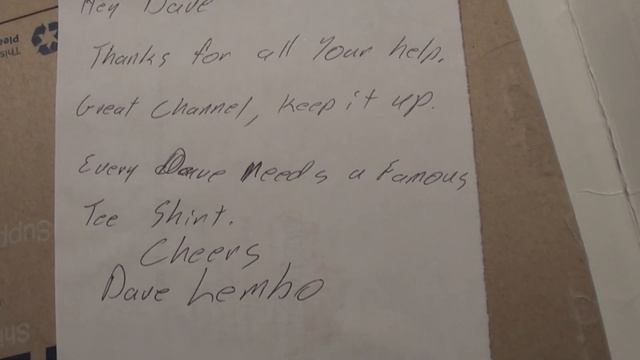 Hey Dave
Thanks for all Your help.
Great Channel, Keep it up.
Every Dave Needs a Famous
Tee Shirt.
Cheers
Dave Lembo